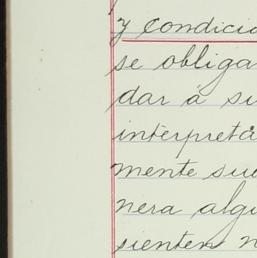 y condicio
se obliga
dar á su
interpreta
mente su
nera algu
sienten n